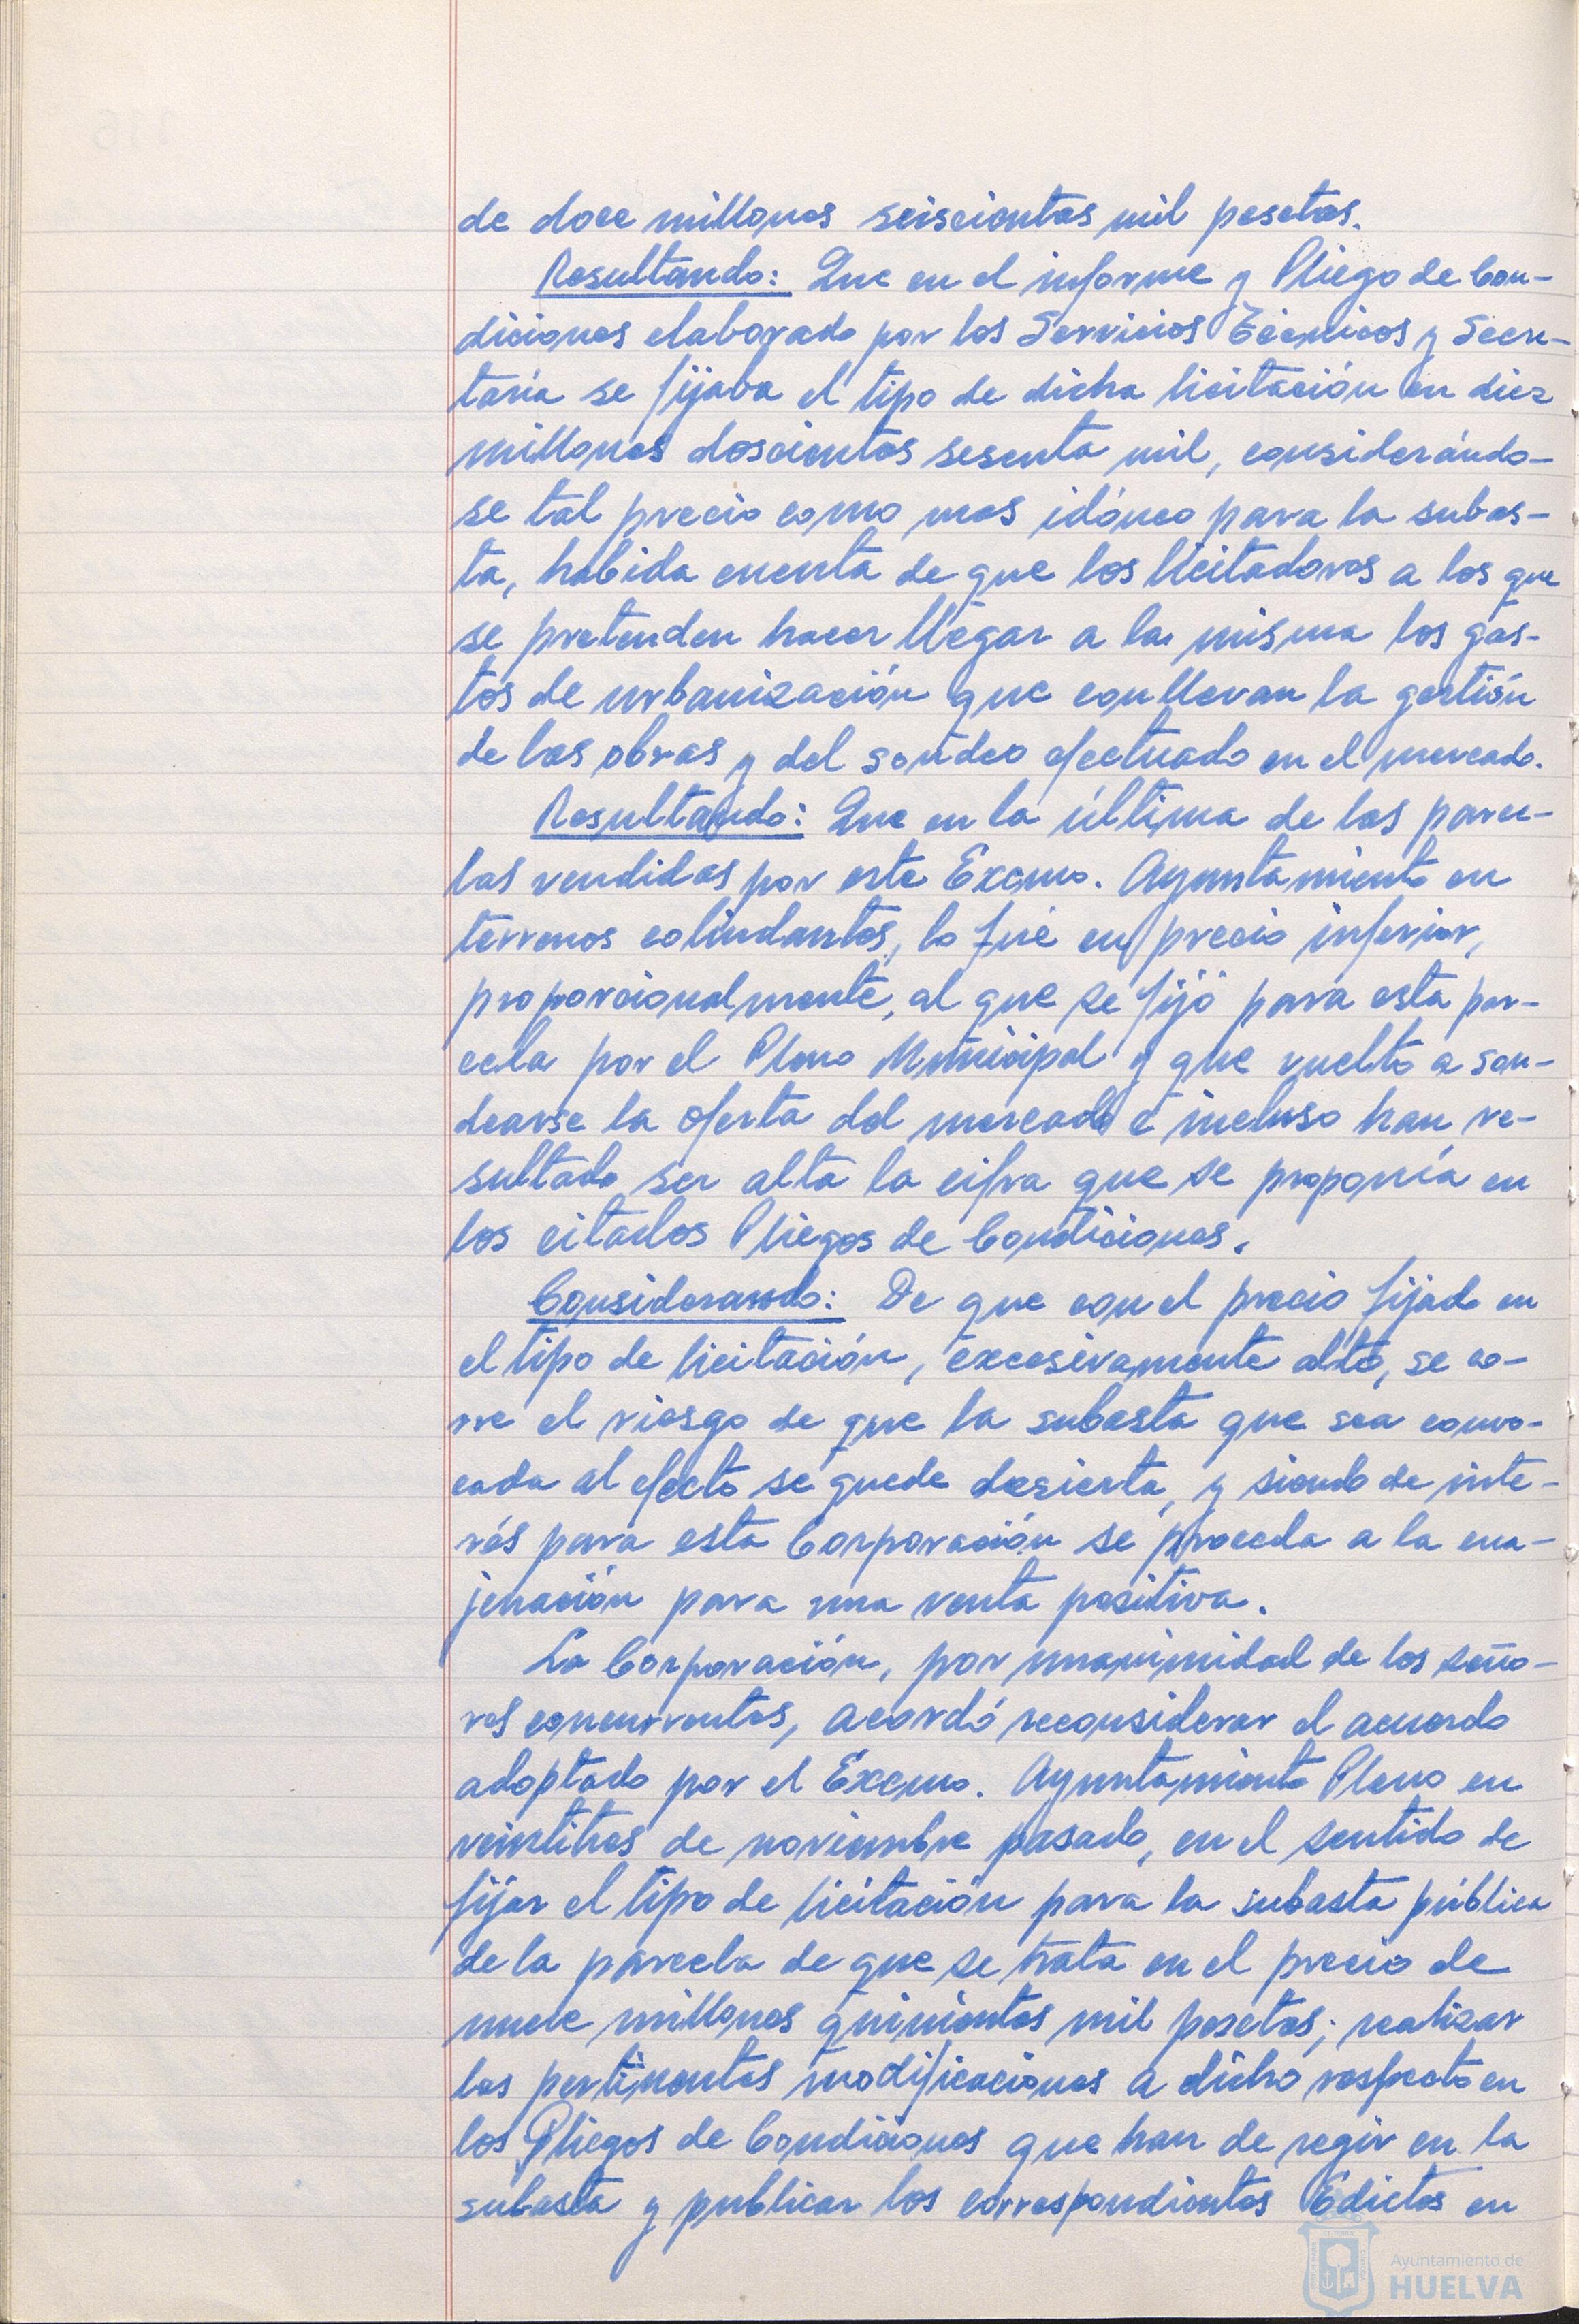 de doce millones seiscientas mil pesetas.
Resultando: Que en el informe y Pliego de Con-
diciones elaborado por los Servicios Técnicos y Secre-
taría se fijaba el tipo de dicha licitación en diez
millones doscientas sesenta mil, considerándo-
se tal precio como mas idóneo para la subas-
ta, habida cuenta de que los licitadores a los que
se pretenden hacer llegar a la misma los gas-
tos de urbanización que conllevan la gestión
de las obras y del sondeo efectuado en el mercado.
Resultando: Que en la última de las parce-
las vendidas por este Excmo. Ayuntamiento en
terrenos colindantes, lo fué en precio inferior,
proporcionalmente, al que se fijó para esta par-
cela por el Pleno Municipal y que vuelto a son-
dearse la oferta del mercado é incluso han re-
sultado ser alta la cifra que se proponía en
los citados Pliegos de Condiciones.
Considerando: De que con el precio fijado en
el tipo de licitación, excesivamente alto, se co-
rre el riesgo de que la subasta que sea convo-
cada al efecto se quede desierta, y siendo de inte-
rés para esta Corporación se proceda a la ena-
jenación para una venta positiva.
La Corporación, por unanimidad de los seño-
res concurrentes, acordó reconsiderar el acuerdo
adoptado por el Excmo. Ayuntamiento Pleno en
veintitres de noviembre pasado, en el sentido de
fijar el tipo de licitación para la subasta pública
de la parcela de que se trata en el precio de
nueve millones quinientas mil pesetas; realizar
las pertinentes modificaciones a dicho respecto en
los Pliegos de Condiciones que han de regir en la
subasta y publicar los correspondientes Edictos en
Ayuntamiento de
HUELVA